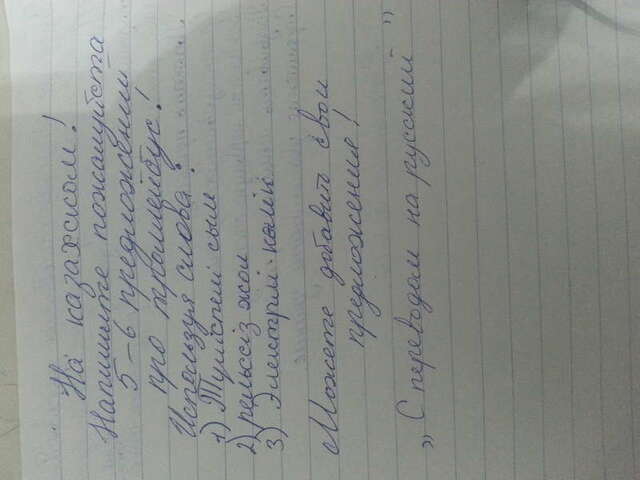 На казахском!
Напишите пожалуйста
5-6 предложений
про троллейбус!
Используя слова:
1) Түйіспелі сым
2) рельсіз жол
3) Электрлі көлік
Можете добавить свои
предложения!
„С переводом на русский"